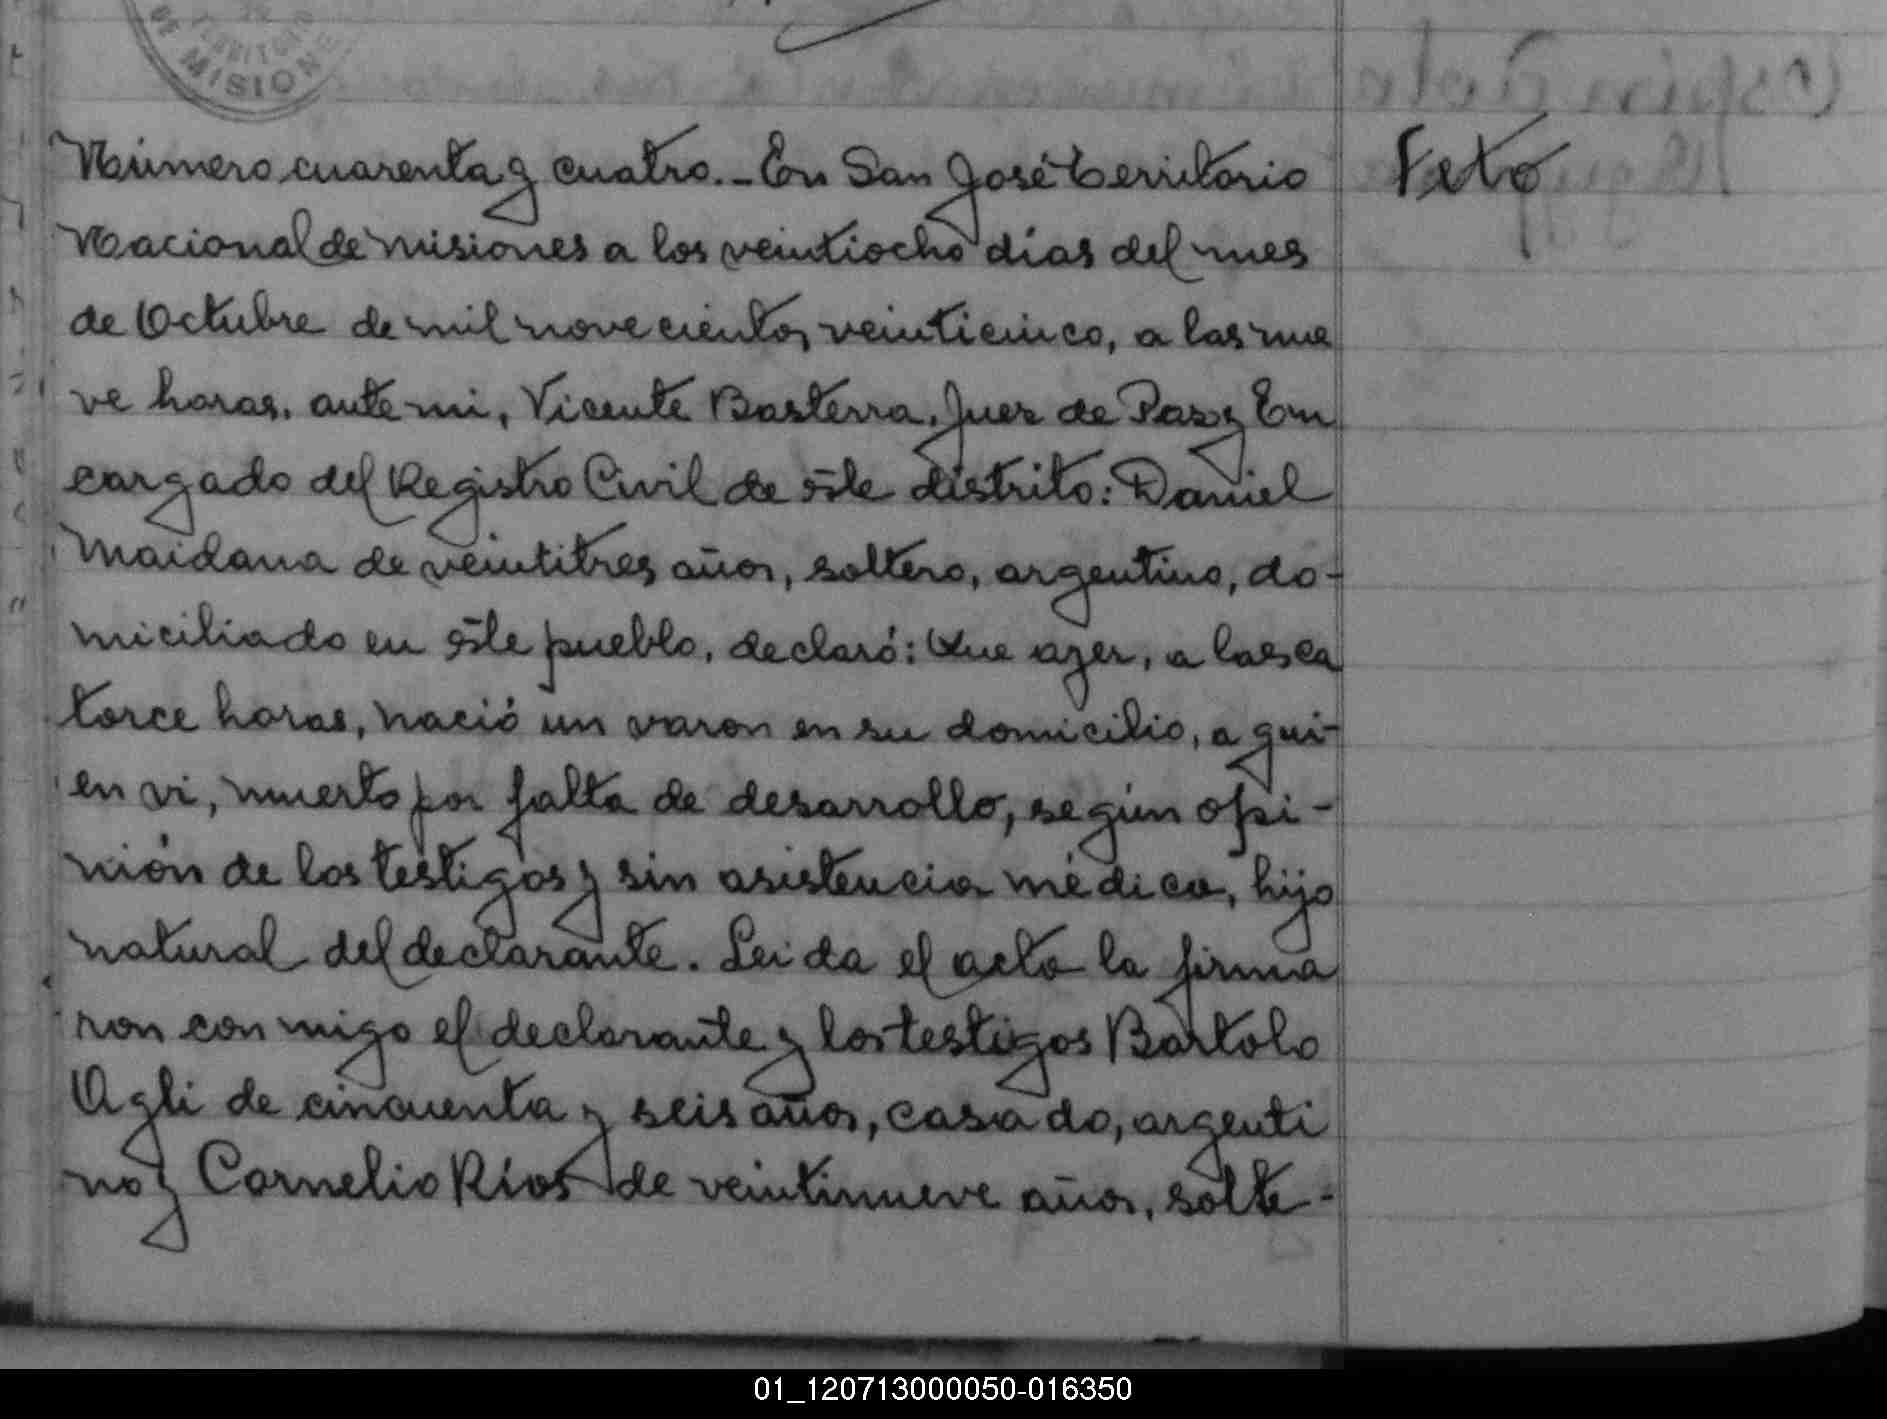 TERRITORIO
DE MISIONE
Número cuarenta y cuatro. - En San José territorio
Nacional de misiones a los veintiocho días del mes
de Octubre de mil novecientos veinticinco, a las nue
ve horas, ante mi, Vicente Basterra, Juez de Paz y En
cargado del Registro Civil de éste distrito: Daniel
Maidana de veintitres años, soltero, argentino, do-
miciliado en éste pueblo, declaró: Que ayer, a las ca
torce horas, nació un varon en su domicilio, a qui-
en vi, muerto por falta de desarrollo, según opi-
nión de los testigos y sin asistencia médica, hijo
natural del declarante. Leida el acta la firma
ron conmigo el declarante y los testigos Bartolo
Agli de cincuenta y seis años, casado, argenti
no y Cornelio Ríos de veintinueve años, solte-
Feto
01_120713000050-016350